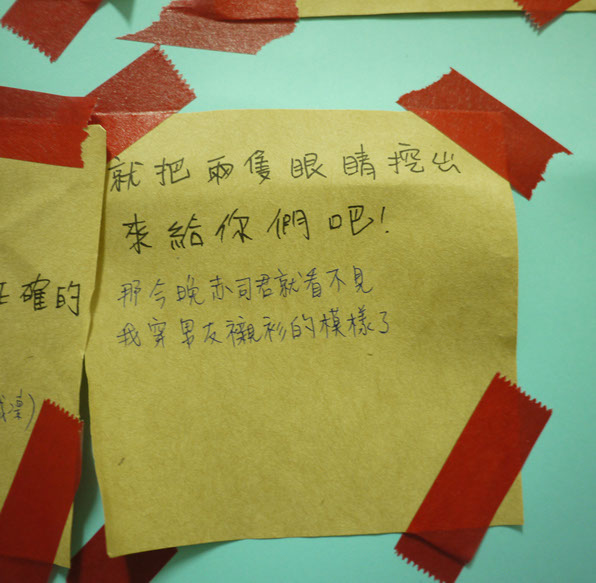 就把兩隻眼睛挖出
來給你們吧!
那今晚赤司君就看不見
我穿男友襯衫的模樣了
正確的
凜)